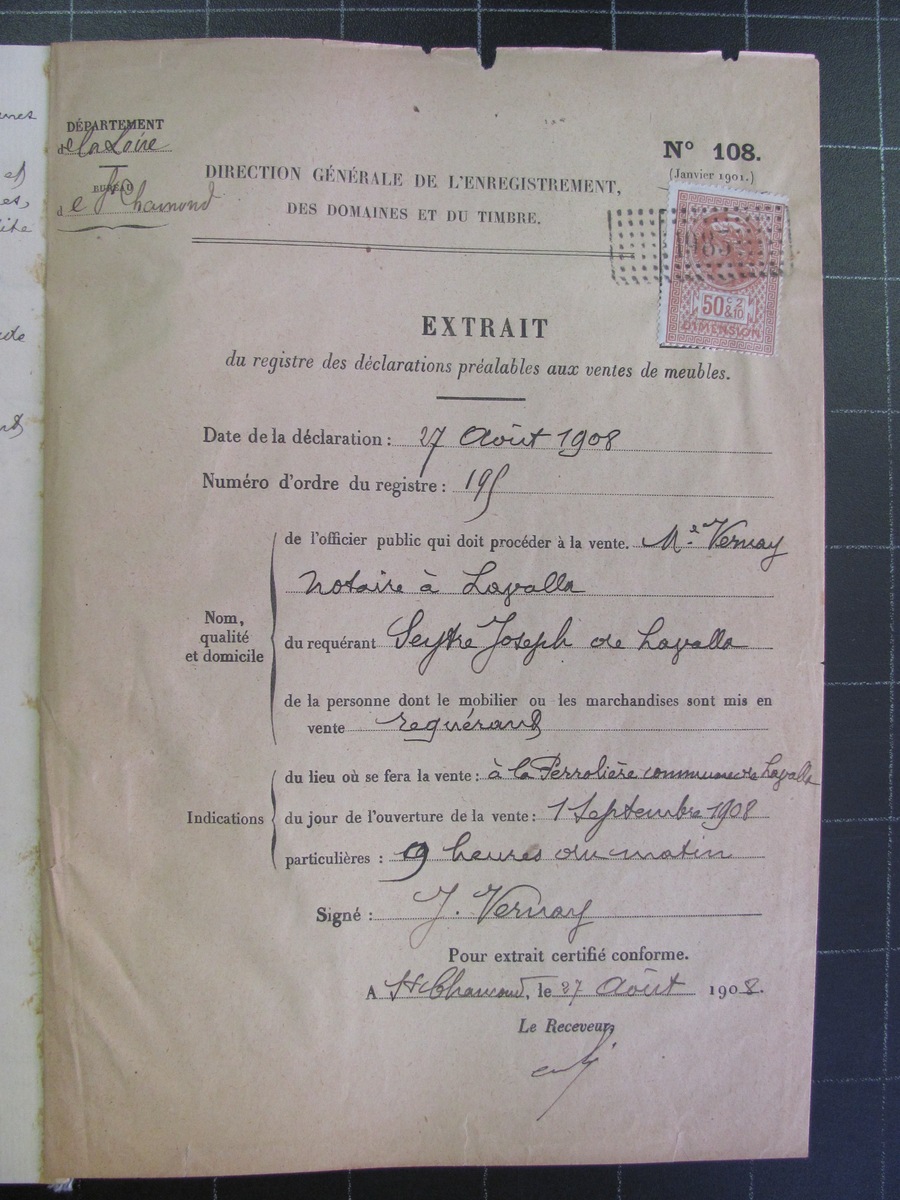 DÉPARTEMENT
de la Loire
BUREAU
de St Chamond
N° 108.
(Janvier 1901.)
DIRECTION GÉNÉRALE DE L'ENREGISTREMENT,
DES DOMAINES ET DU TIMBRE.
50c 2/10
DIMENSION
EXTRAIT
du registre des déclarations préalables aux ventes de meubles.
Date de la déclaration : 27 Août 1908
Numéro d'ordre du registre : 195
Nom,
qualité
et domicile
de l'officier public qui doit procéder à la vente. Me Vernay
notaire à Lavalla
du requérant Seytre Joseph de Lavalla
de la personne dont le mobilier ou les marchandises sont mis en
vente requérant
Indications
du lieu où se fera la vente : à la Perrolière commune de Lavalla
du jour de l'ouverture de la vente : 1 Septembre 1908
particulières : 9 heures du matin
Signé : J. Vernay
Pour extrait certifié conforme.
A St Chamond, le 27 Août 1908.
Le Receveur,